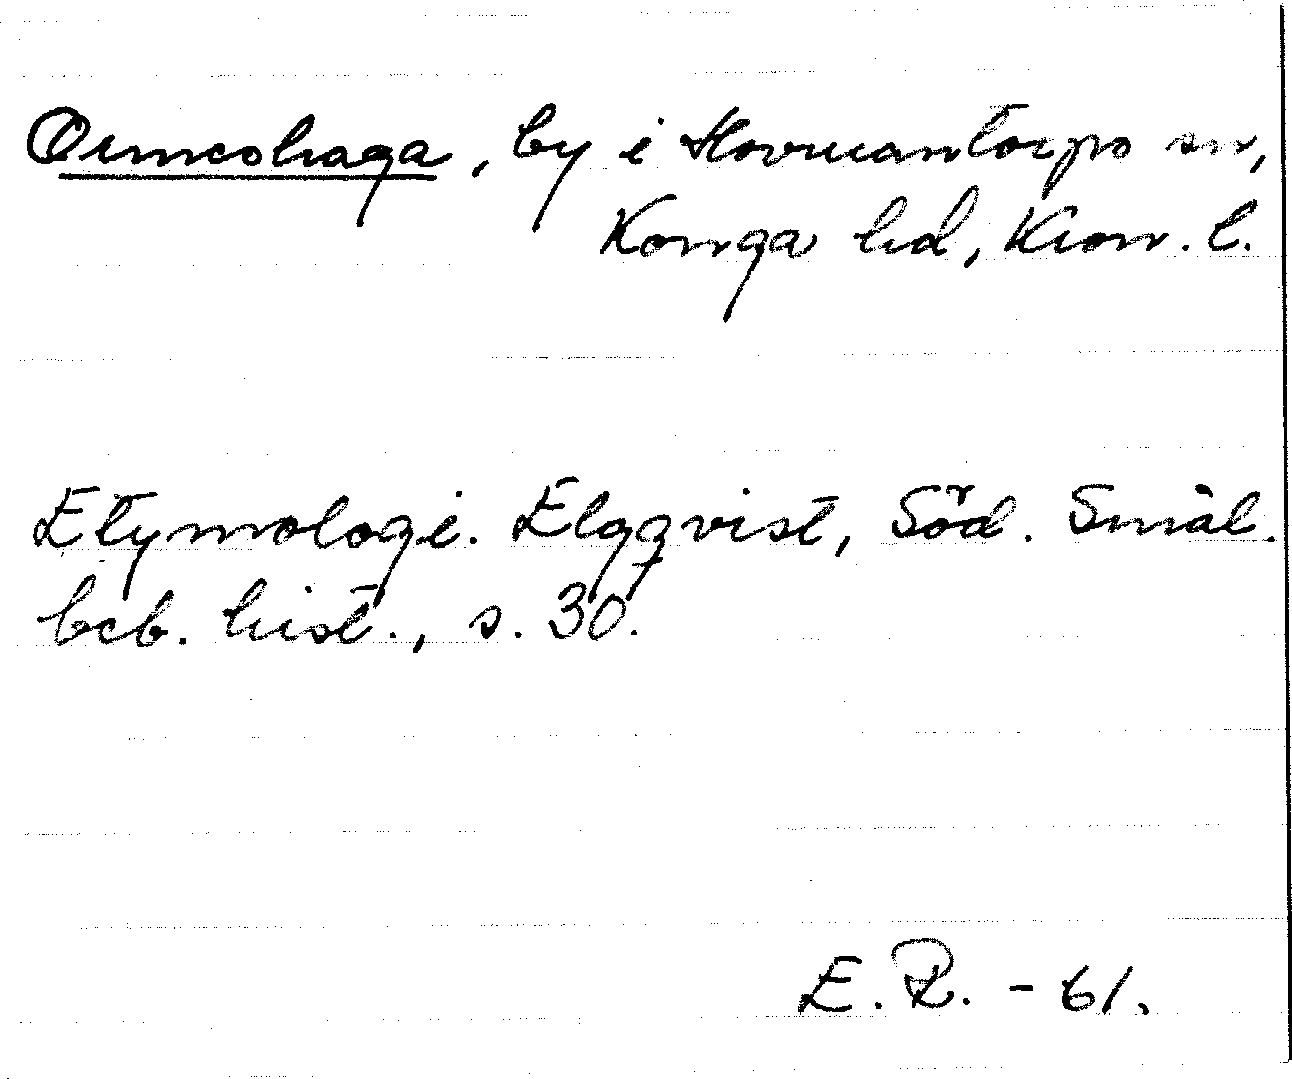 Ormeshaga, by i Hovmantorps sn,
Konga hd, Kron. l.
Etymologi. Elgqvist, Söd. Smål.
beb. hist., s. 30.
E. R. - 61.